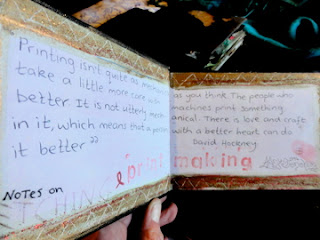 Printing isn't quite as mechanical
take a little more care with
better. It is not utterly mech
in it, which means that a person
it better "
Notes on
TCHING
print
as you think. The people who
machines print something
anical. There is love and craft
with a better heart can do
David Hockney
making